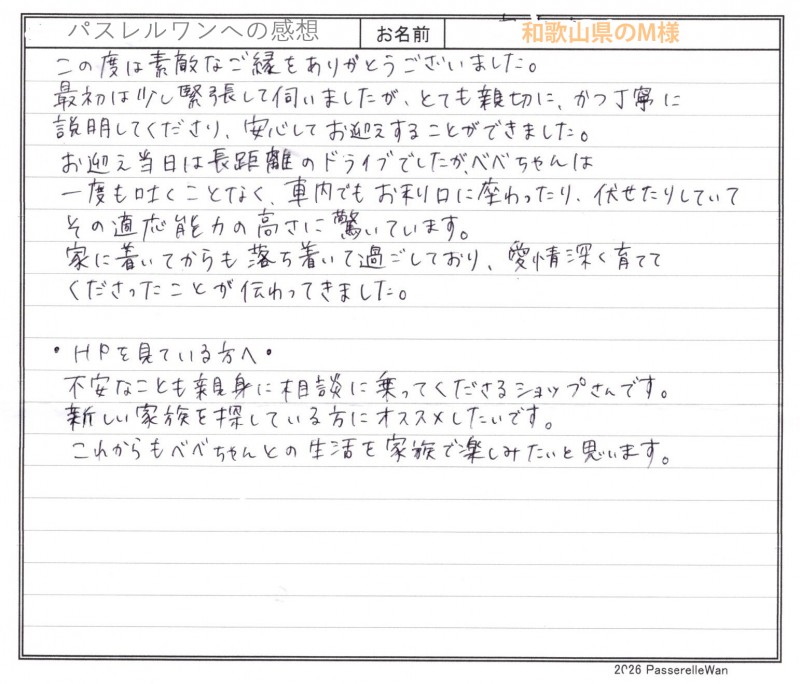 パスレルワンへの感想 お名前 和歌山県のM様
この度は素敵なご縁をありがとうございました。
最初は少し緊張して伺いましたが、とても親切に、かつ丁寧に
説明してくださり、安心してお迎えすることができました。
お迎え当日は長距離のドライブでしたが、べべちゃんは
一度も吐くことなく、車内でもお利口に座わったり、伏せたりしていて
その適応能力の高さに驚いています。
家に着いてからも落ち着いて過ごしており、愛情深く育てて
くださったことが伝わってきました。
・HPを見ている方へ・
不安なことも親身に相談に乗ってくださるショップさんです。
新しい家族を探している方にオススメしたいです。
これからもべべちゃんとの生活を家族で楽しみたいと思います。
2026 PasserelleWan